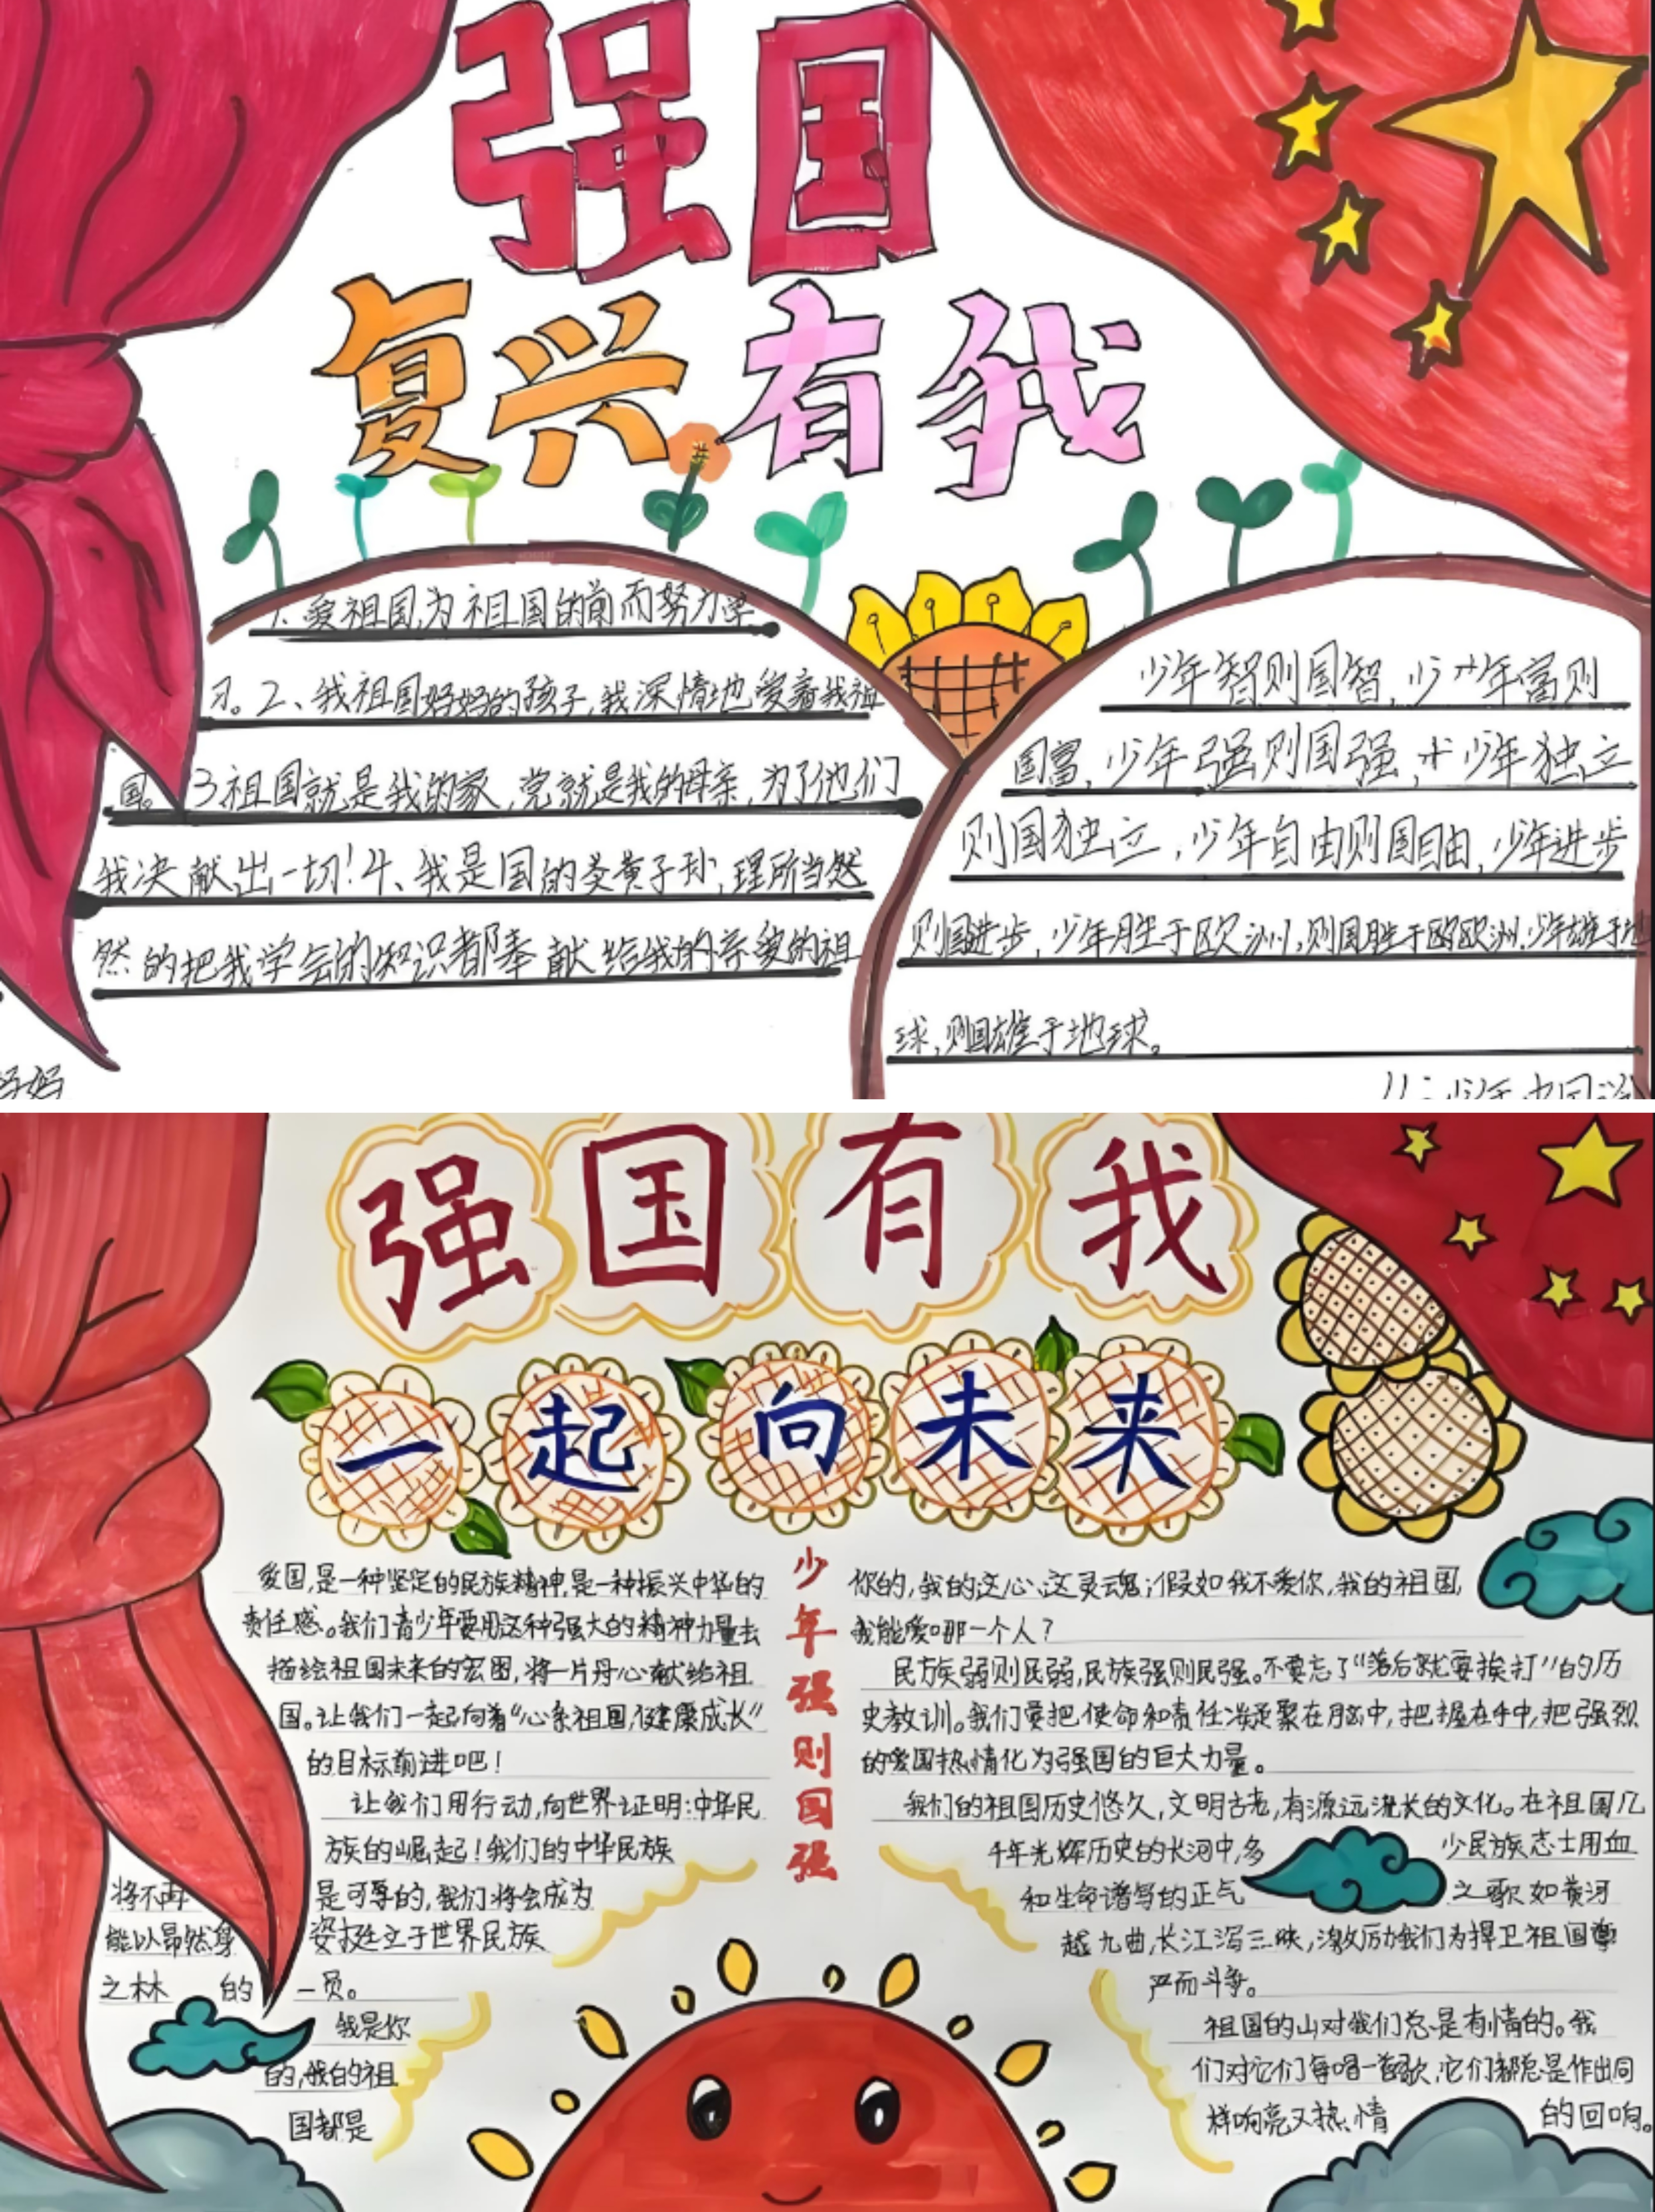 强国
复兴有我
1.爱祖国,为祖国的前而努力学
习。2、我祖国妈妈的孩子,我深情地爱着我祖
国。3祖国就是我的家,党就是我的母亲,为了他们
我决献出一切!4、我是国的炎黄子孙,理所当然
然的把我学会的知识都奉献给我的亲爱的祖
妈妈
少年智则国智,少年富则
国富,少年强则国强,少年独立
则国独立,少年自由则国自由,少年进步
则国进步,少年胜于欧洲,则国胜于欧欧洲,少年雄于地
球,则国雄于地球。
强国有我
一起向未来
爱国,是一种坚定的民族精神,是一种振兴中华的
责任感。我们青少年要用这种强大的精神力量去
描绘祖国未来的宏图,将一片丹心献给祖
国。让我们一起向着“心系祖国,健康成长”
的目标前进吧!
让我们用行动,向世界证明:中华民
族的崛起!我们的中华民族
将不再 是可辱的,我们将会成为
能以昂然身 姿挺立于世界民族
之林 的 一员。
我是你
的,我的祖
国都是
少年强则国强
你的,我的这心、这灵魂;假如我不爱你,我的祖国,
我能爱哪一个人?
民族弱则民弱,民族强则民强。不要忘了“落后就要挨打”的历
史教训。我们要把使命和责任凝聚在脑中,把握在手中,把强烈
的爱国热情化为强国的巨大力量。
我们的祖国历史悠久,文明古老,有源远流长的文化。在祖国几
千年光辉历史的长河中,多 少民族志士用血
和生命谱写的正气 之歌如黄河
越九曲,长江泻三峡,激励我们为捍卫祖国尊
严而斗争。
祖国的山对我们总是有情的。我
们对它们每唱一首歌,它们都总是作出同
样响亮又热情 的回响。